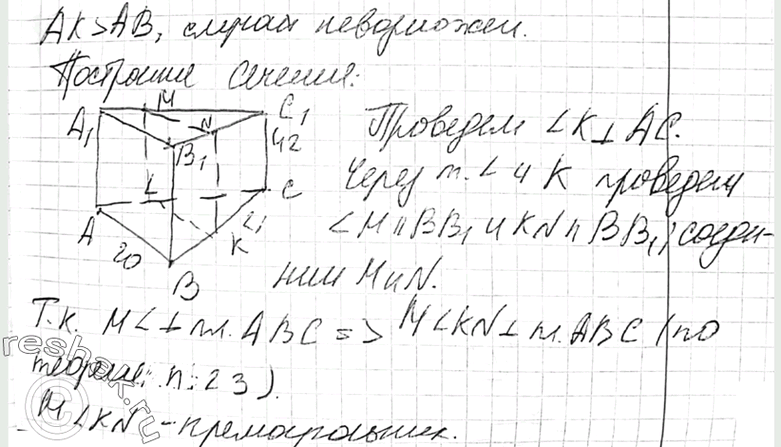 AK>AB, случай невозможен.
Построим сечение:
A₁ M N C₁
B₁ 42
L C
A K 21
20
B
Проведем LK⊥AC.
Через т. L и K проведем
LM∥BB₁ и KN∥BB₁, соеди-
ним M и N.
Т.к. ML⊥пл.ABC => MLKN⊥пл.ABC (по
теореме п.23).
MLKN - прямоугольник.
reshak.ru